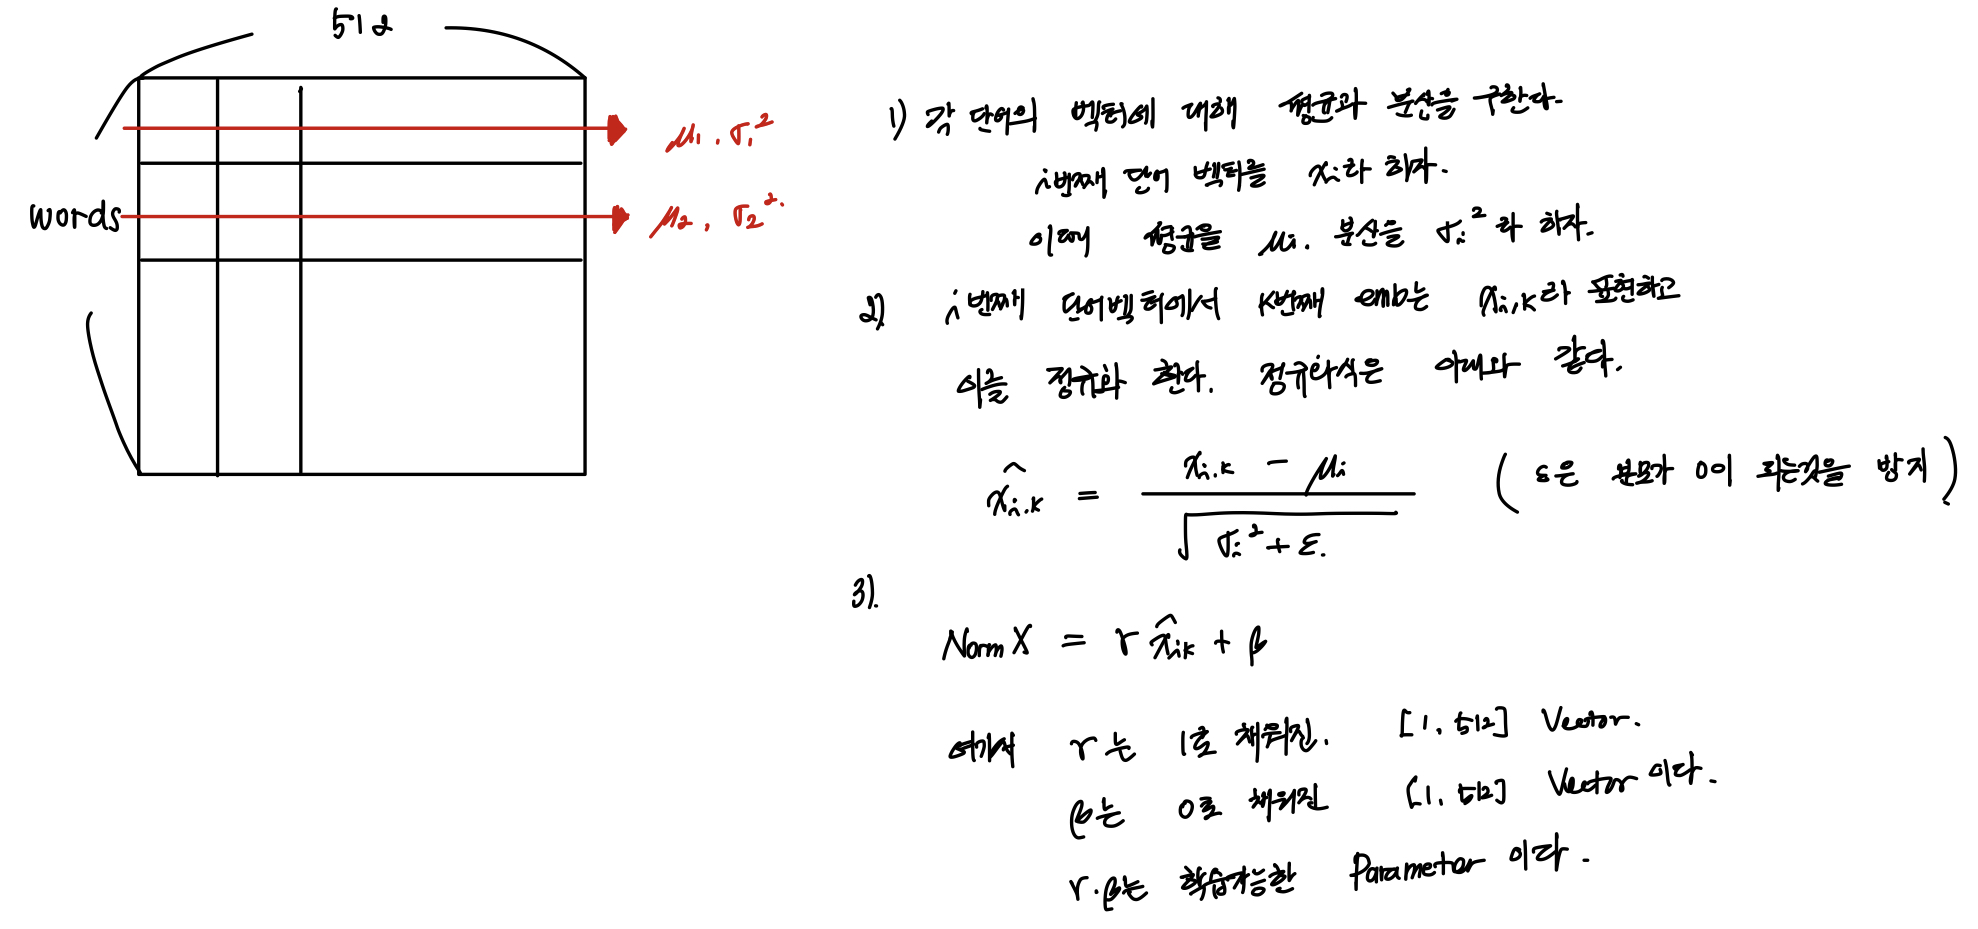 512
words
μ₁, σ₁²
μ₂, σ₂²
1) 각 단어의 벡터에 대해 평균과 분산을 구한다.
i번째 단어 벡터를 xᵢ라 하자.
이때 평균을 μᵢ, 분산을 σᵢ²라 하자.
2) i번째 단어벡터에서 k번째 emb는 xᵢ,ₖ라 표현하고
이를 정규화 한다. 정규화식은 아래와 같다.
x̂ᵢ,ₖ = (xᵢ,ₖ - μᵢ) / √(σᵢ² + ε) (ε은 분모가 0이 되는것을 방지)
3).
Norm X = r x̂ᵢₖ + β
여기서 r는 1로 채워진. [1, 512] Vector.
β는 0로 채워진 [1, 512] Vector 이다.
r.β는 학습가능한 Parameter 이다.